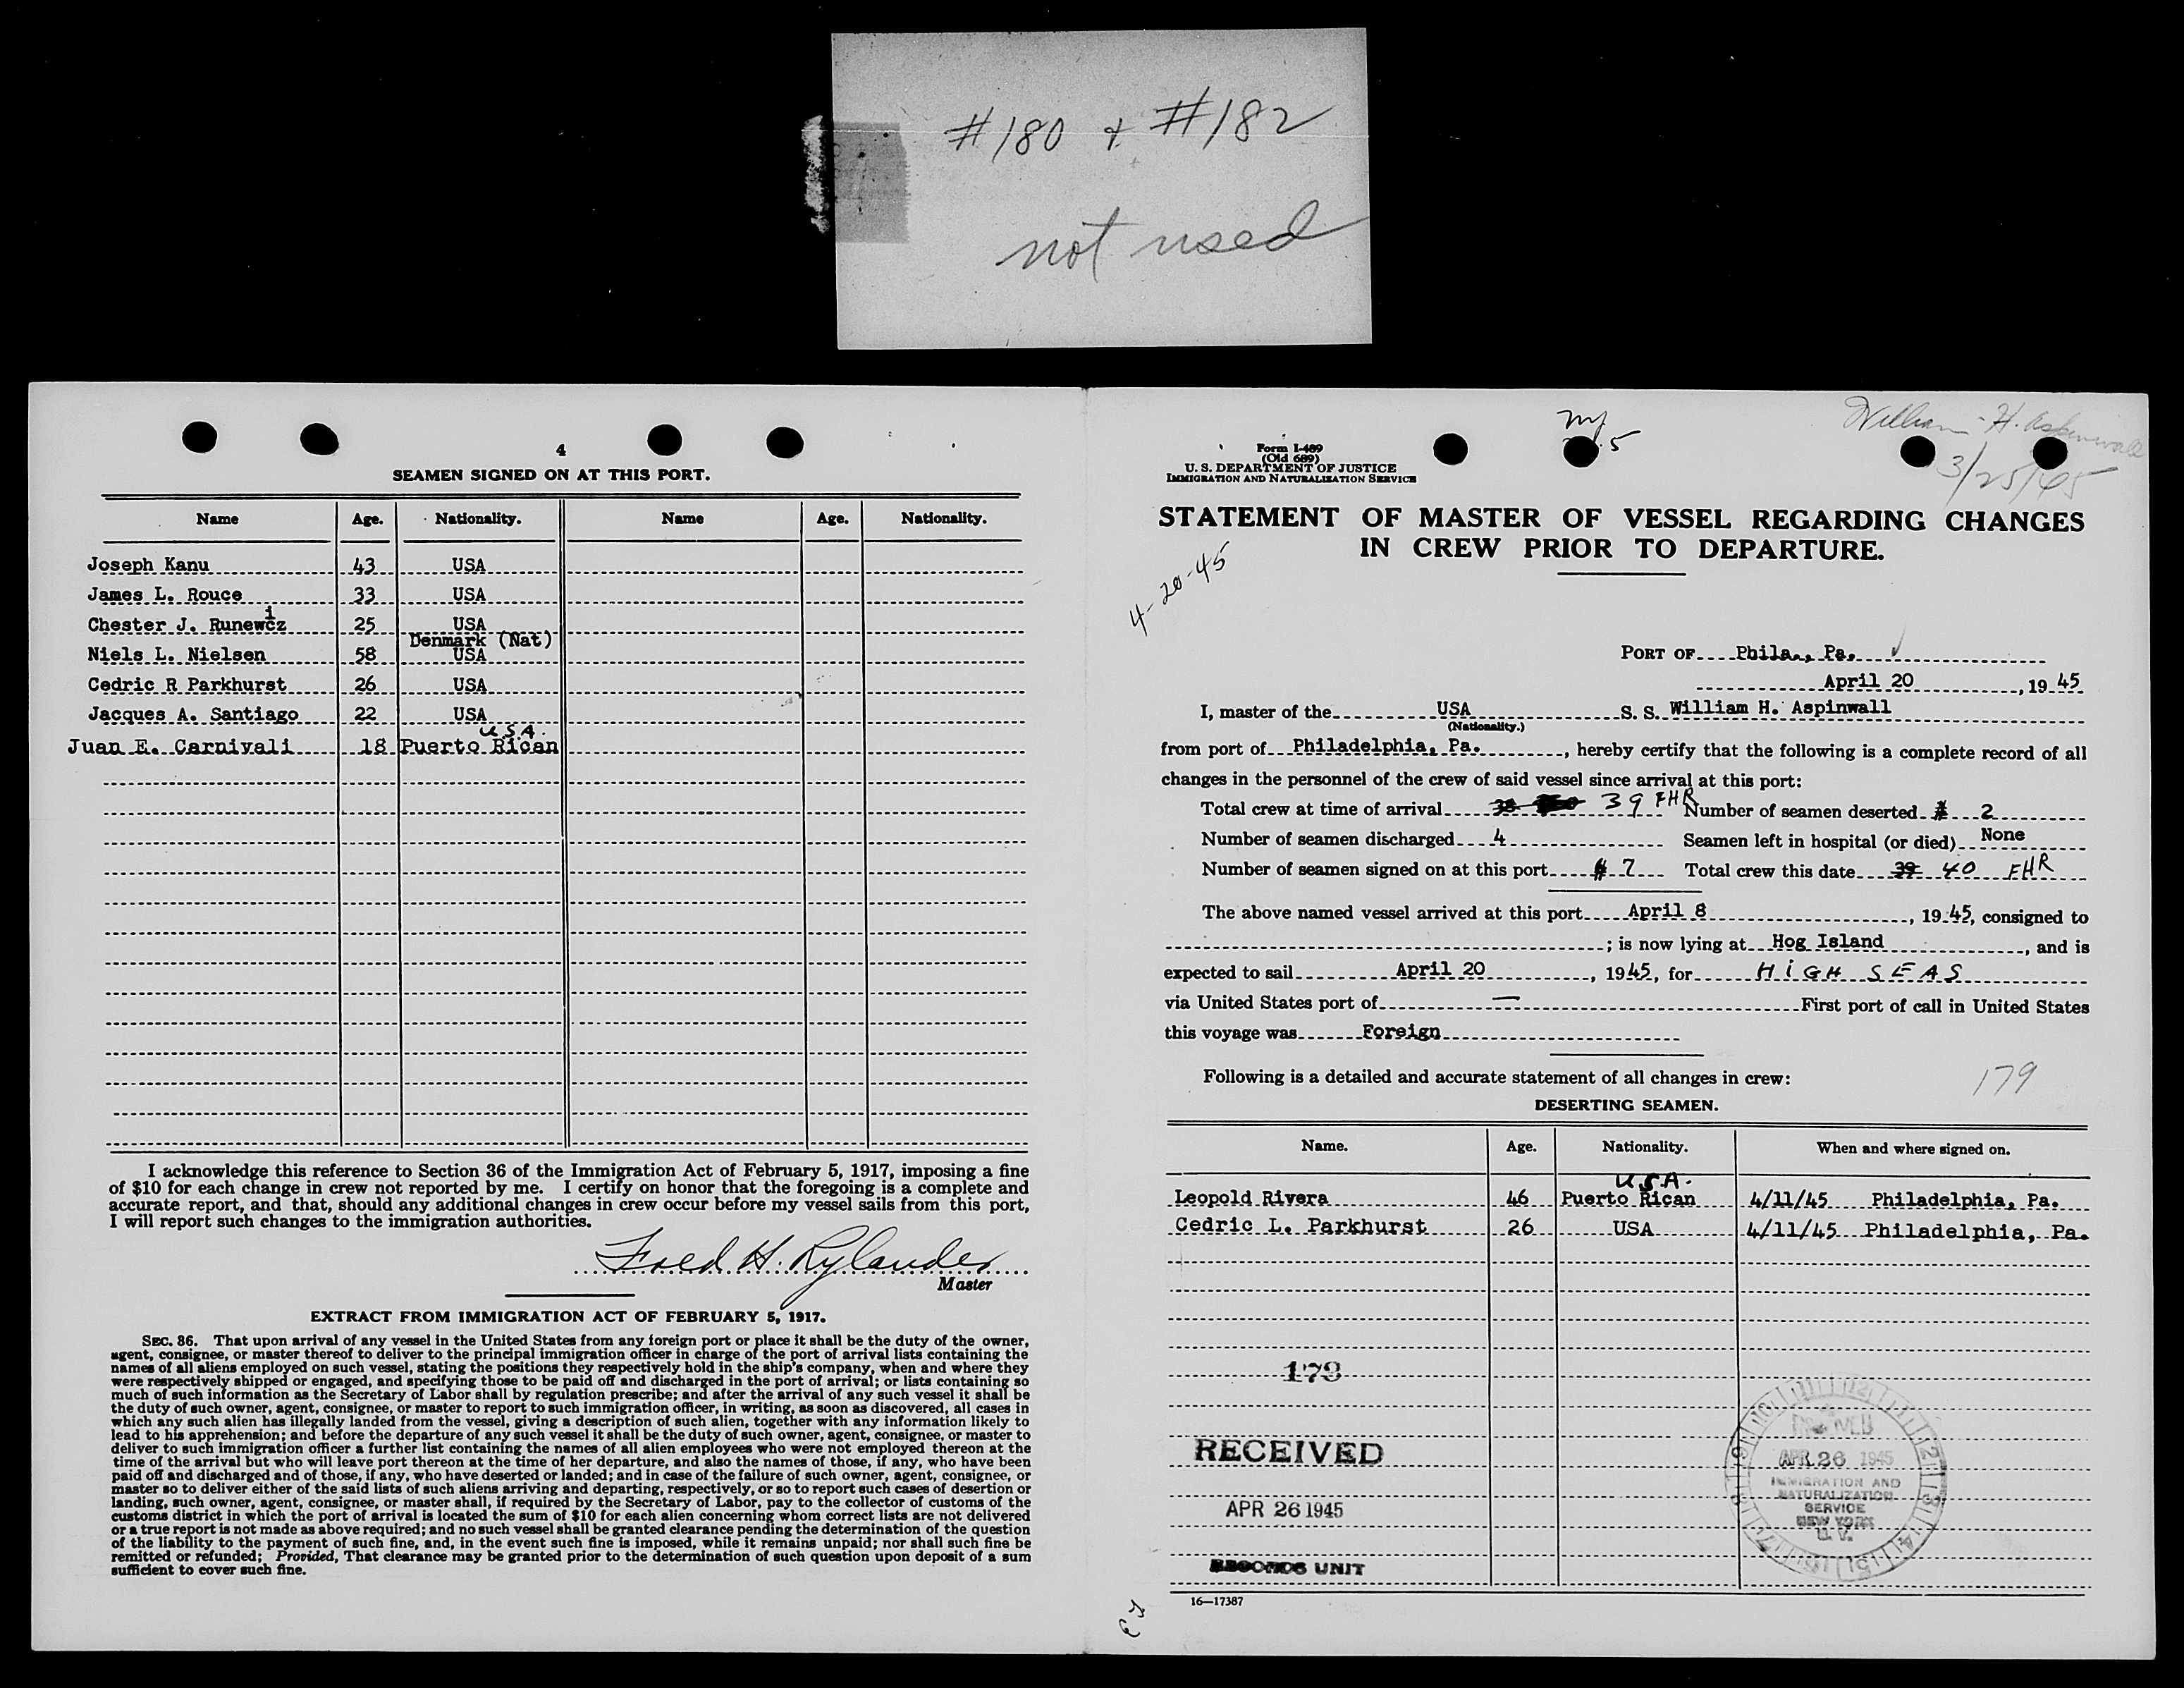 #180 + #182
not used
4
SEAMEN SIGNED ON AT THIS PORT.
Name Age. Nationality. Name Age. Nationality.
Joseph Kanu 43 USA
James L. Rouce 33 USA
i
Chester J. Runewcz 25 USA
Denmark (Nat)
Niels L. Nielsen 58 USA
Cedric R Parkhurst 26 USA
Jacques A. Santiago 22 USA
U.S.A.
Juan E. Carnivali 18 Puerto Rican
I acknowledge this reference to Section 36 of the Immigration Act of February 5, 1917, imposing a fine
of $10 for each change in crew not reported by me. I certify on honor that the foregoing is a complete and
accurate report, and that, should any additional changes in crew occur before my vessel sails from this port,
I will report such changes to the immigration authorities.
Fred H. Rylander
Master
EXTRACT FROM IMMIGRATION ACT OF FEBRUARY 5, 1917.
SEC. 36. That upon arrival of any vessel in the United States from any foreign port or place it shall be the duty of the owner,
agent, consignee, or master thereof to deliver to the principal immigration officer in charge of the port of arrival lists containing the
names of all aliens employed on such vessel, stating the positions they respectively hold in the ship's company, when and where they
were respectively shipped or engaged, and specifying those to be paid off and discharged in the port of arrival; or lists containing so
much of such information as the Secretary of Labor shall by regulation prescribe; and after the arrival of any such vessel it shall be
the duty of such owner, agent, consignee, or master to report to such immigration officer, in writing, as soon as discovered, all cases in
which any such alien has illegally landed from the vessel, giving a description of such alien, together with any information likely to
lead to his apprehension; and before the departure of any such vessel it shall be the duty of such owner, agent, consignee, or master to
deliver to such immigration officer a further list containing the names of all alien employees who were not employed thereon at the
time of the arrival but who will leave port thereon at the time of her departure, and also the names of those, if any, who have been
paid off and discharged and of those, if any, who have deserted or landed; and in case of the failure of such owner, agent, consignee, or
master so to deliver either of the said lists of such aliens arriving and departing, respectively, or so to report such cases of desertion or
landing, such owner, agent, consignee, or master shall, if required by the Secretary of Labor, pay to the collector of customs of the
customs district in which the port of arrival is located the sum of $10 for each alien concerning whom correct lists are not delivered
or a true report is not made as above required; and no such vessel shall be granted clearance pending the determination of the question
of the liability to the payment of such fine, and, in the event such fine is imposed, while it remains unpaid; nor shall such fine be
remitted or refunded; Provided, That clearance may be granted prior to the determination of such question upon deposit of a sum
sufficient to cover such fine.
William H. Aspinwall
3/25/45
Form I-489
(Old 689)
U. S. DEPARTMENT OF JUSTICE
IMMIGRATION AND NATURALIZATION SERVICE
STATEMENT OF MASTER OF VESSEL REGARDING CHANGES
IN CREW PRIOR TO DEPARTURE.
4-20-45
PORT OF Phila., Pa.
April 20, 1945
I, master of the USA S. S. William H. Aspinwall
(Nationality.)
from port of Philadelphia, Pa., hereby certify that the following is a complete record of all
changes in the personnel of the crew of said vessel since arrival at this port:
Total crew at time of arrival 38 39 FHR Number of seamen deserted 2
Number of seamen discharged 4 Seamen left in hospital (or died) None
Number of seamen signed on at this port 7 Total crew this date 39 40 FHR
The above named vessel arrived at this port April 8, 1945, consigned to
; is now lying at Hog Island, and is
expected to sail April 20, 1945, for HIGH SEAS
via United States port of — First port of call in United States
this voyage was Foreign
Following is a detailed and accurate statement of all changes in crew:
179
DESERTING SEAMEN.
Name. Age. Nationality. When and where signed on.
U.S.A.
Leopold Rivera 46 Puerto Rican 4/11/45 Philadelphia, Pa.
Cedric L. Parkhurst 26 USA 4/11/45 Philadelphia, Pa.
179
RECEIVED
APR 26 1945
RECORDS UNIT
RECEIVED
APR 26 1945
IMMIGRATION AND
NATURALIZATION
SERVICE
NEW YORK
16—17387